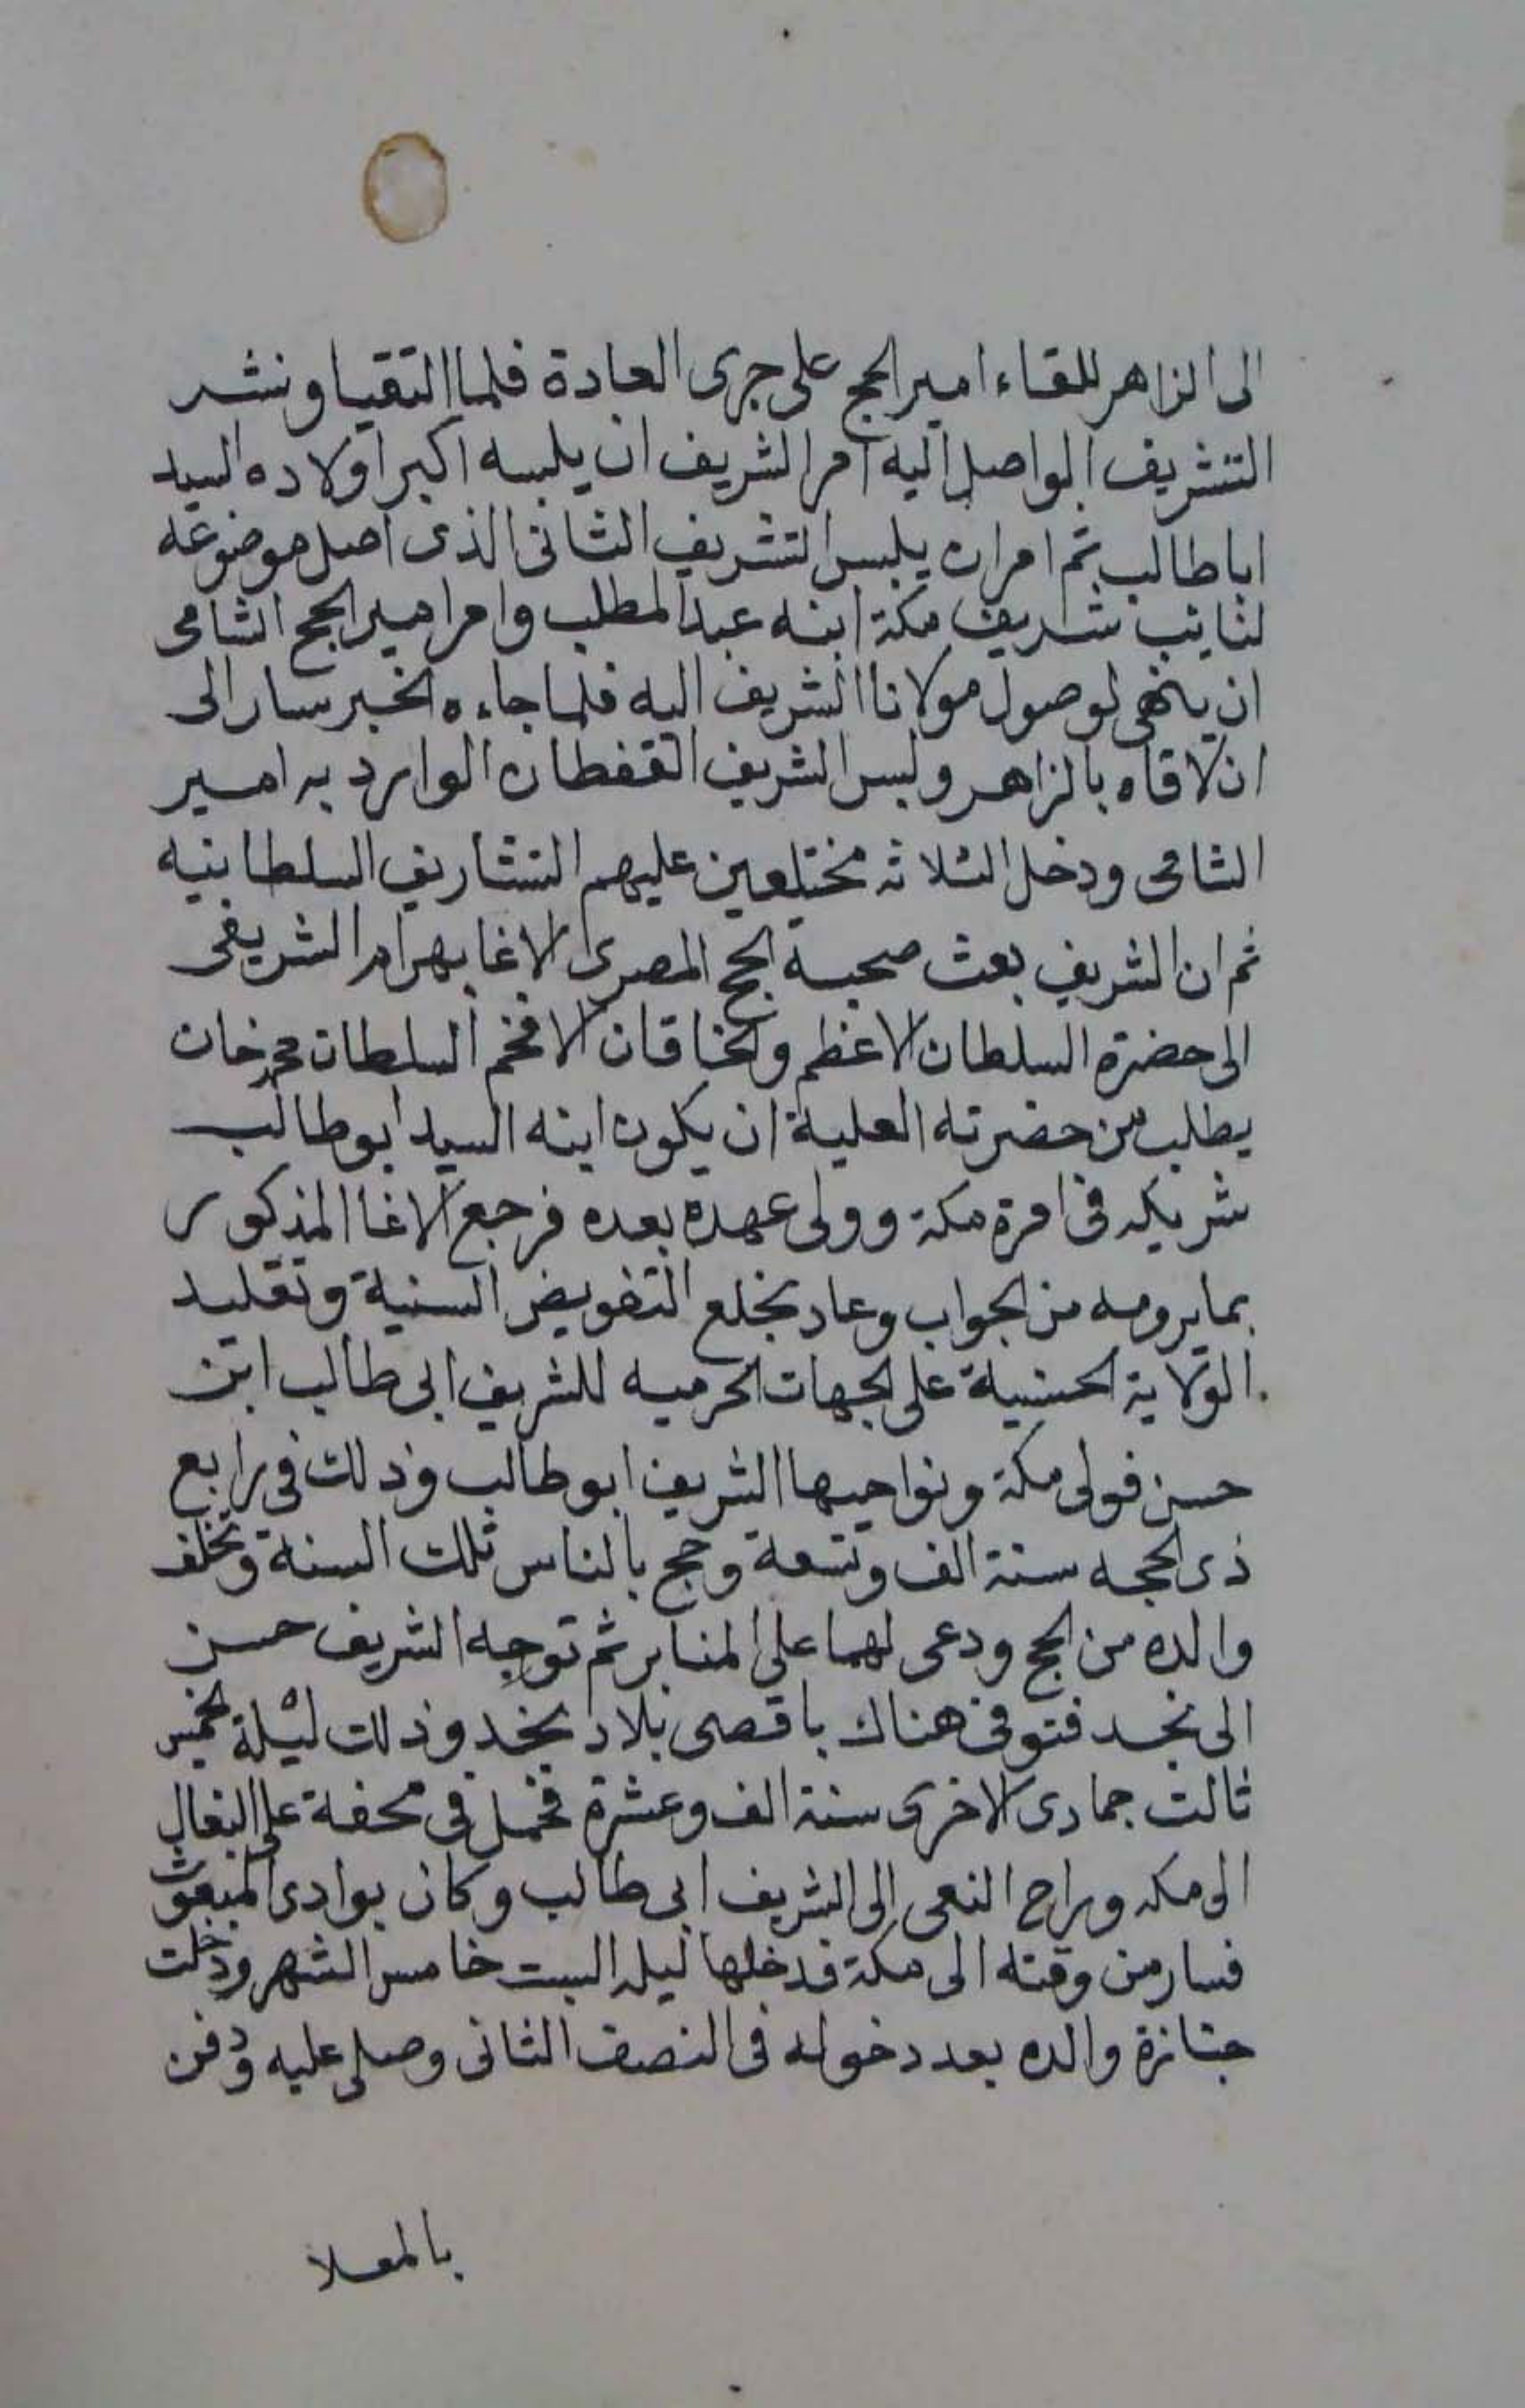 الى الزاهر للقاء امير الحج على جرى العادة فلما التقيا ونشر
التشريف الواصل اليه امر الشريف ان يلبسه اكبر اولاده السيد
ابا طالب ثم امر ان يلبس التشريف الثانى الذى اصل موضوعه
لنايب شريف مكة ابنه عبد المطلب وامر امير الحج الشامى
ان ينهى لوصول مولانا الشريف اليه فلما جاءه الخبر سار الى
ان لاقاه بالزاهر ولبس الشريف القفطان الوارد به امير
الشامى ودخل الثلاثه مختلعين عليهم التشاريف السلطانيه
ثم ان الشريف بعث صحبة الحج المصرى الاغا بهرام الشريفى
الى حضرة السلطان الاعظم والخاقان الافخم السلطان محمد خان
يطلب من حضرته العلية ان يكون ابنه السيد ابو طالب
شريكه فى امرة مكة وولى عهده بعده فرجع الاغا المذكور
بما يرومه من الجواب وعاد بخلع التفويض السنية وتقليد
الولاية الحسنية على الجهات الحرميه للشريف ابى طالب ابن
حسن فولى مكة ونواحيها الشريف ابو طالب وذلك فى رابع
ذى الحجه سنة الف وتسعة وحج بالناس تلك السنة وتخلف
والده من الحج ودعى لهما على المنابر ثم توجه الشريف حسن
الى نجد فتوفى هناك باقصى بلاد نجد وذلك ليلة الخميس
ثالث جمادى الاخرى سنة الف وعشرة فحمل فى محفة على البغال
الى مكه وراح النعى الى الشريف ابى طالب وكان بوادى المبعوث
فسار من وقته الى مكة فدخلها ليله السبت خامس الشهر ودخلت
جنازة والده بعد دخوله فى النصف الثانى وصلى عليه ودفن
بالمعلا